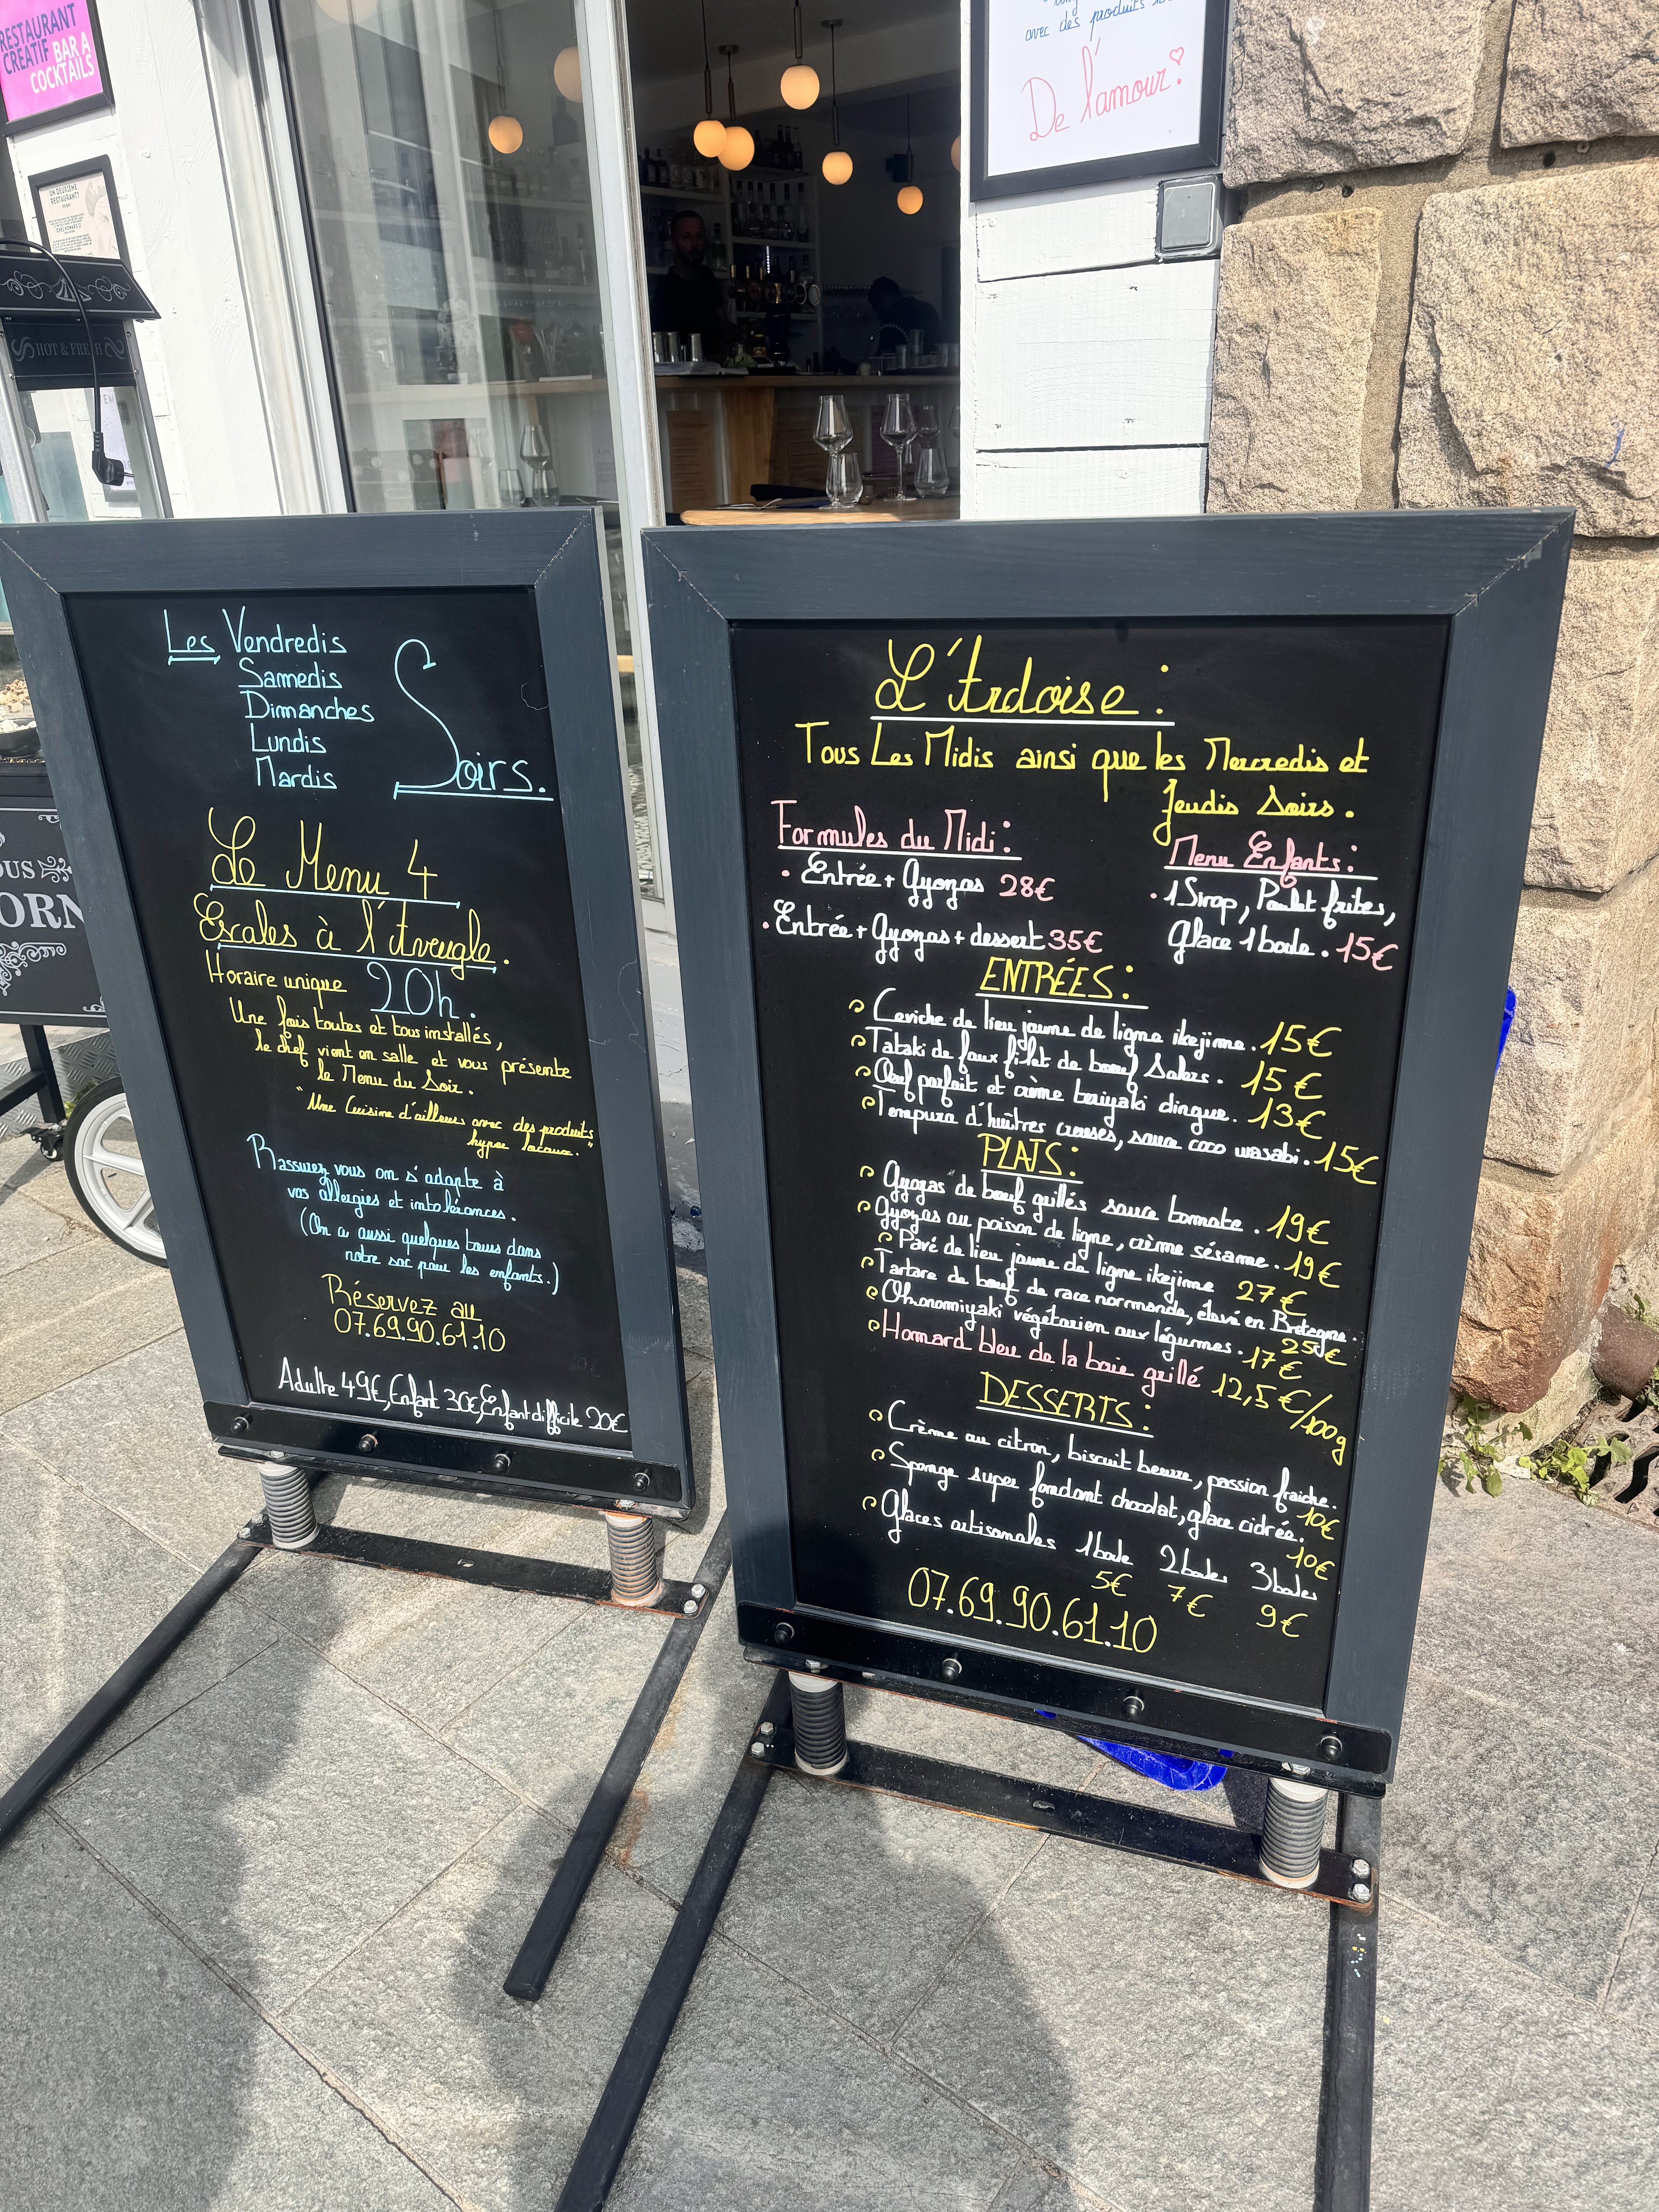 RESTAURANT
CRÉATIF BAR A
COCKTAILS
UN DEUXIÈME
RESTAURANT?
HOT & FRESH
OUS
ORN
avec des produits
De l'amour.
Les Vendredis
Samedis
Dimanches
Lundis
Mardis
Soirs.
Le Menu 4
Escales à l'Aveugle.
Horaire unique 20h.
Une fois toutes et tous installés,
le chef vient en salle et vous présente
le Menu du Soir.
"Une Cuisine d'ailleurs avec des produits
hyper locaux."
Rassurez vous on s'adapte à
vos allergies et intolérances.
(On a aussi quelques tours dans
notre sac pour les enfants.)
Réservez au
07.69.90.61.10
Adulte 49€, Enfant 30€, Enfant difficile 20€
L'Ardoise :
Tous Les Midis ainsi que les Mercredis et
Jeudis Soirs.
Formules du Midi :
• Entrée + Gyozas 28€
• Entrée + Gyozas + dessert 35€
Menu Enfants :
• 1 Sirop, Poulet frites,
Glace 1 boule. 15€
ENTRÉES :
Ceviche de lieu jaune de ligne ikejime. 15€
Tataki de faux filet de bœuf Salers. 15€
Œuf parfait et crème teriyaki dingue. 13€
Tempura d'huîtres creuses, sauce coco wasabi. 15€
PLATS :
Gyozas de bœuf grillés sauce tomate. 19€
Gyozas au poisson de ligne, crème sésame. 19€
Pavé de lieu jaune de ligne ikejime 27€
Tartare de bœuf de race normande, élevé en Bretagne.
25€
Okonomiyaki végétarien aux légumes. 17€
Homard bleu de la baie grillé 12,5€/100g
DESSERTS :
Crème au citron, biscuit beurre, passion fraiche.
10€
Sponge super fondant chocolat, glace cidrée.
10€
Glaces artisanales 1 boule 2 boules 3 boules
5€ 7€ 9€
07.69.90.61.10